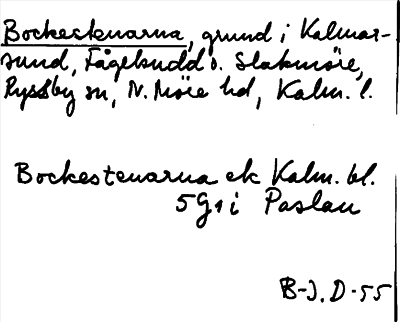 Bockestenarna, grund i Kalmar-
sund, Fågeludd o. Slakmöre,
Ryssby sn, N. Möre hd, Kalm. l.
Bockestenarna ek Kalm. bl.
5G1 i Paslau
B-J. D-55